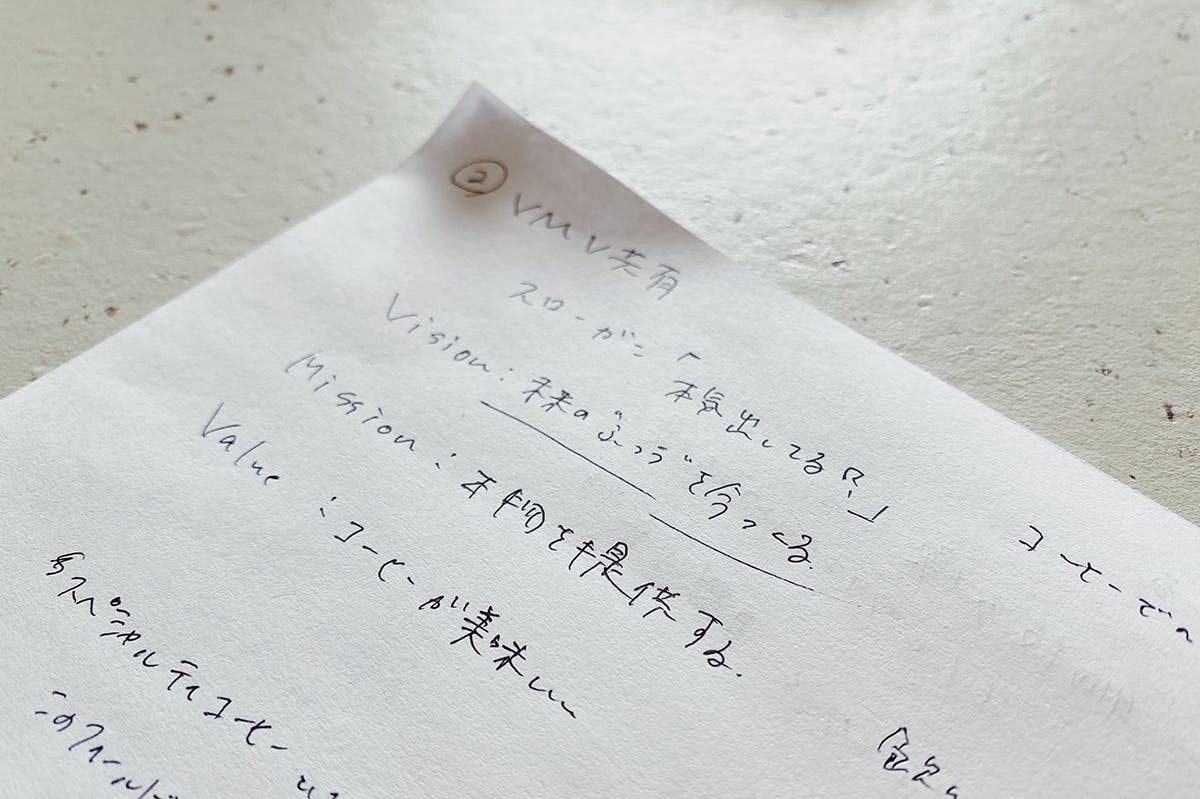 ② VMV共有
スローガン「本気出してる?」
Vision: 未来の"ふつう"を今つくる。
Mission: 本物を提供する。
Value : コーヒーが美味しい
コーヒーでの
スペシャルティコーヒー
このフィールド